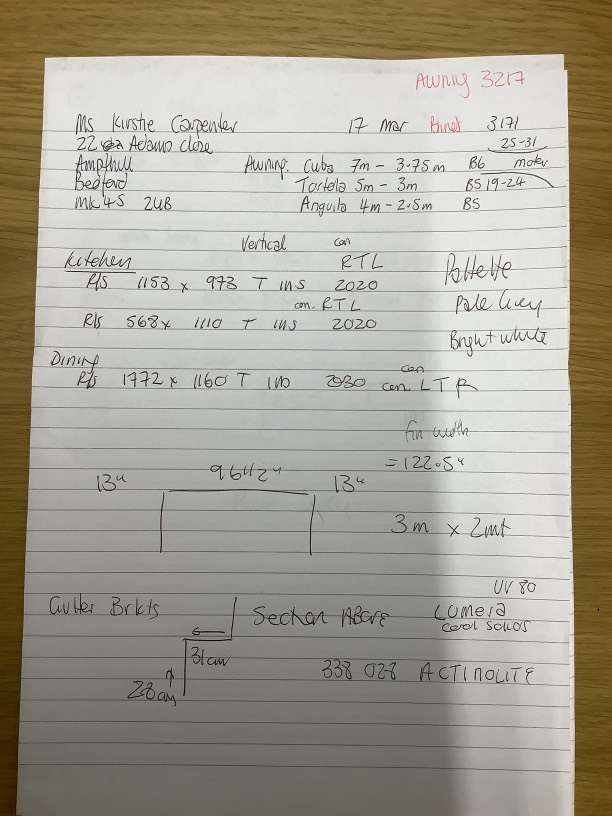 AWNING 3217
Ms Kirstie Carpenter 17 Mar Blinds 3171
22 Adams close 25-31
Ampthill Awning: Cuba 7m - 3.75m B6 motor
Bedford Tortola 5m - 3m B5 19-24
MK45 2UB Anguila 4m - 2.5m B5
Vertical con
Kitchen RTL Pallette
R/S 1153 x 973 T ins 2020
con. RTL Pale Grey
R/S 568 x 1110 T ins 2020
Bright white
Dining con
R/S 1772 x 1160 T ins 2030 con LTR
fin width
= 122.5"
13" 96 1/2" 13"
3m x 2mt
UV 80
Gutter Brkts Section ABOVE LUMERA
31cm
28cm 338 028 ACTINOLITE